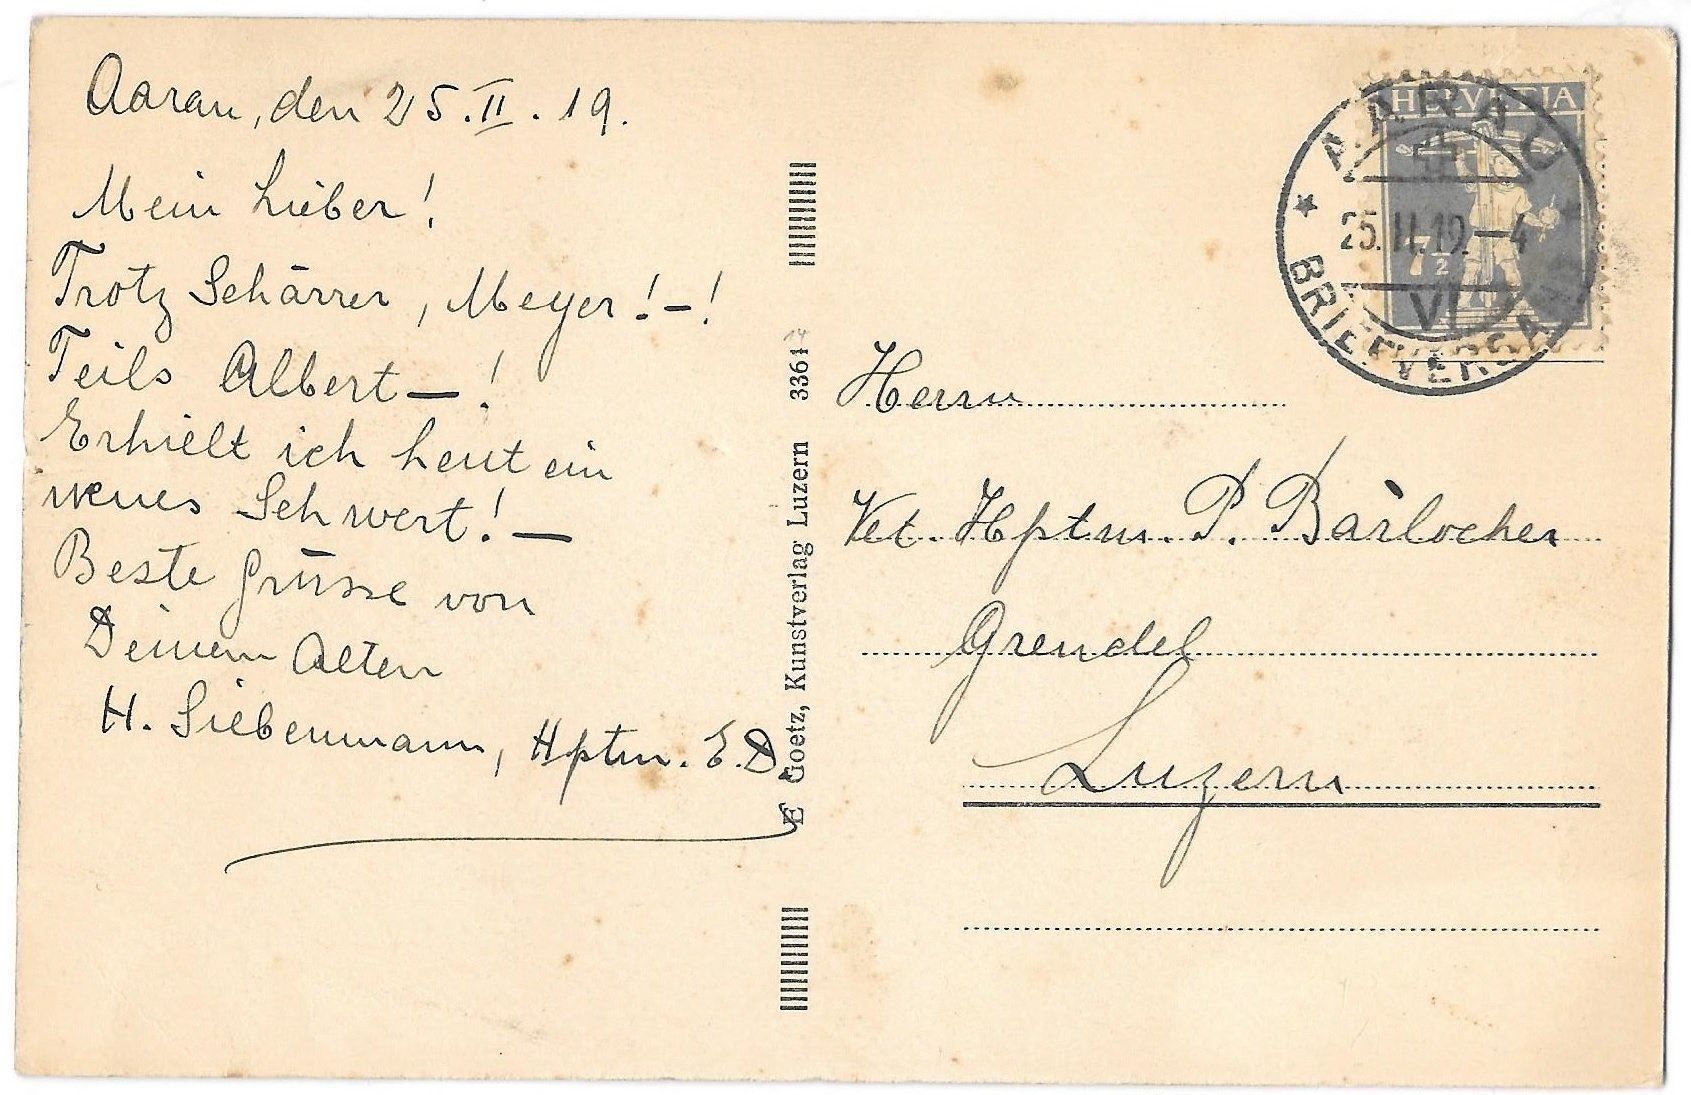 Aarau, den 25.II.19.
Mein Lieber!
Trotz Schärrer, Meyer!-!
Teils Albert—!
Erhielt ich heut ein
neues Schwert!—
Beste Grüsse von
Deinem Alten
H. Siebenmann, Hptm. E.D.
E Goetz, Kunstverlag Luzern 3361
14
HELVETIA
7 1/2
AARAU
25.II.19.–4
VI
BRIEFVERSAND
Herrn
Vet. Hptm. P. Bärlocher
Grendel
Luzern